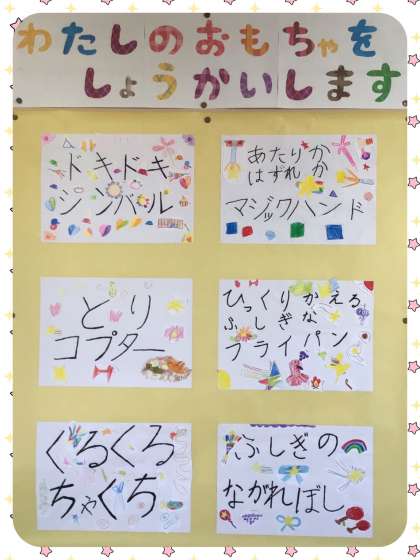 わたしのおもちゃを
しょうかいします
ドキドキ
シンバル
あたりか
はずれかか
マジックハンド
とり
コプター
ひっくりかえる
ふしぎな
フライパン
くるくる
ちゃぐち
ふしぎの
ながれぼし